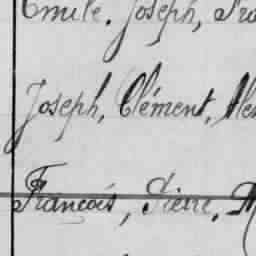 Emile, Joseph,
Joseph, Clément,
François, Pierre,